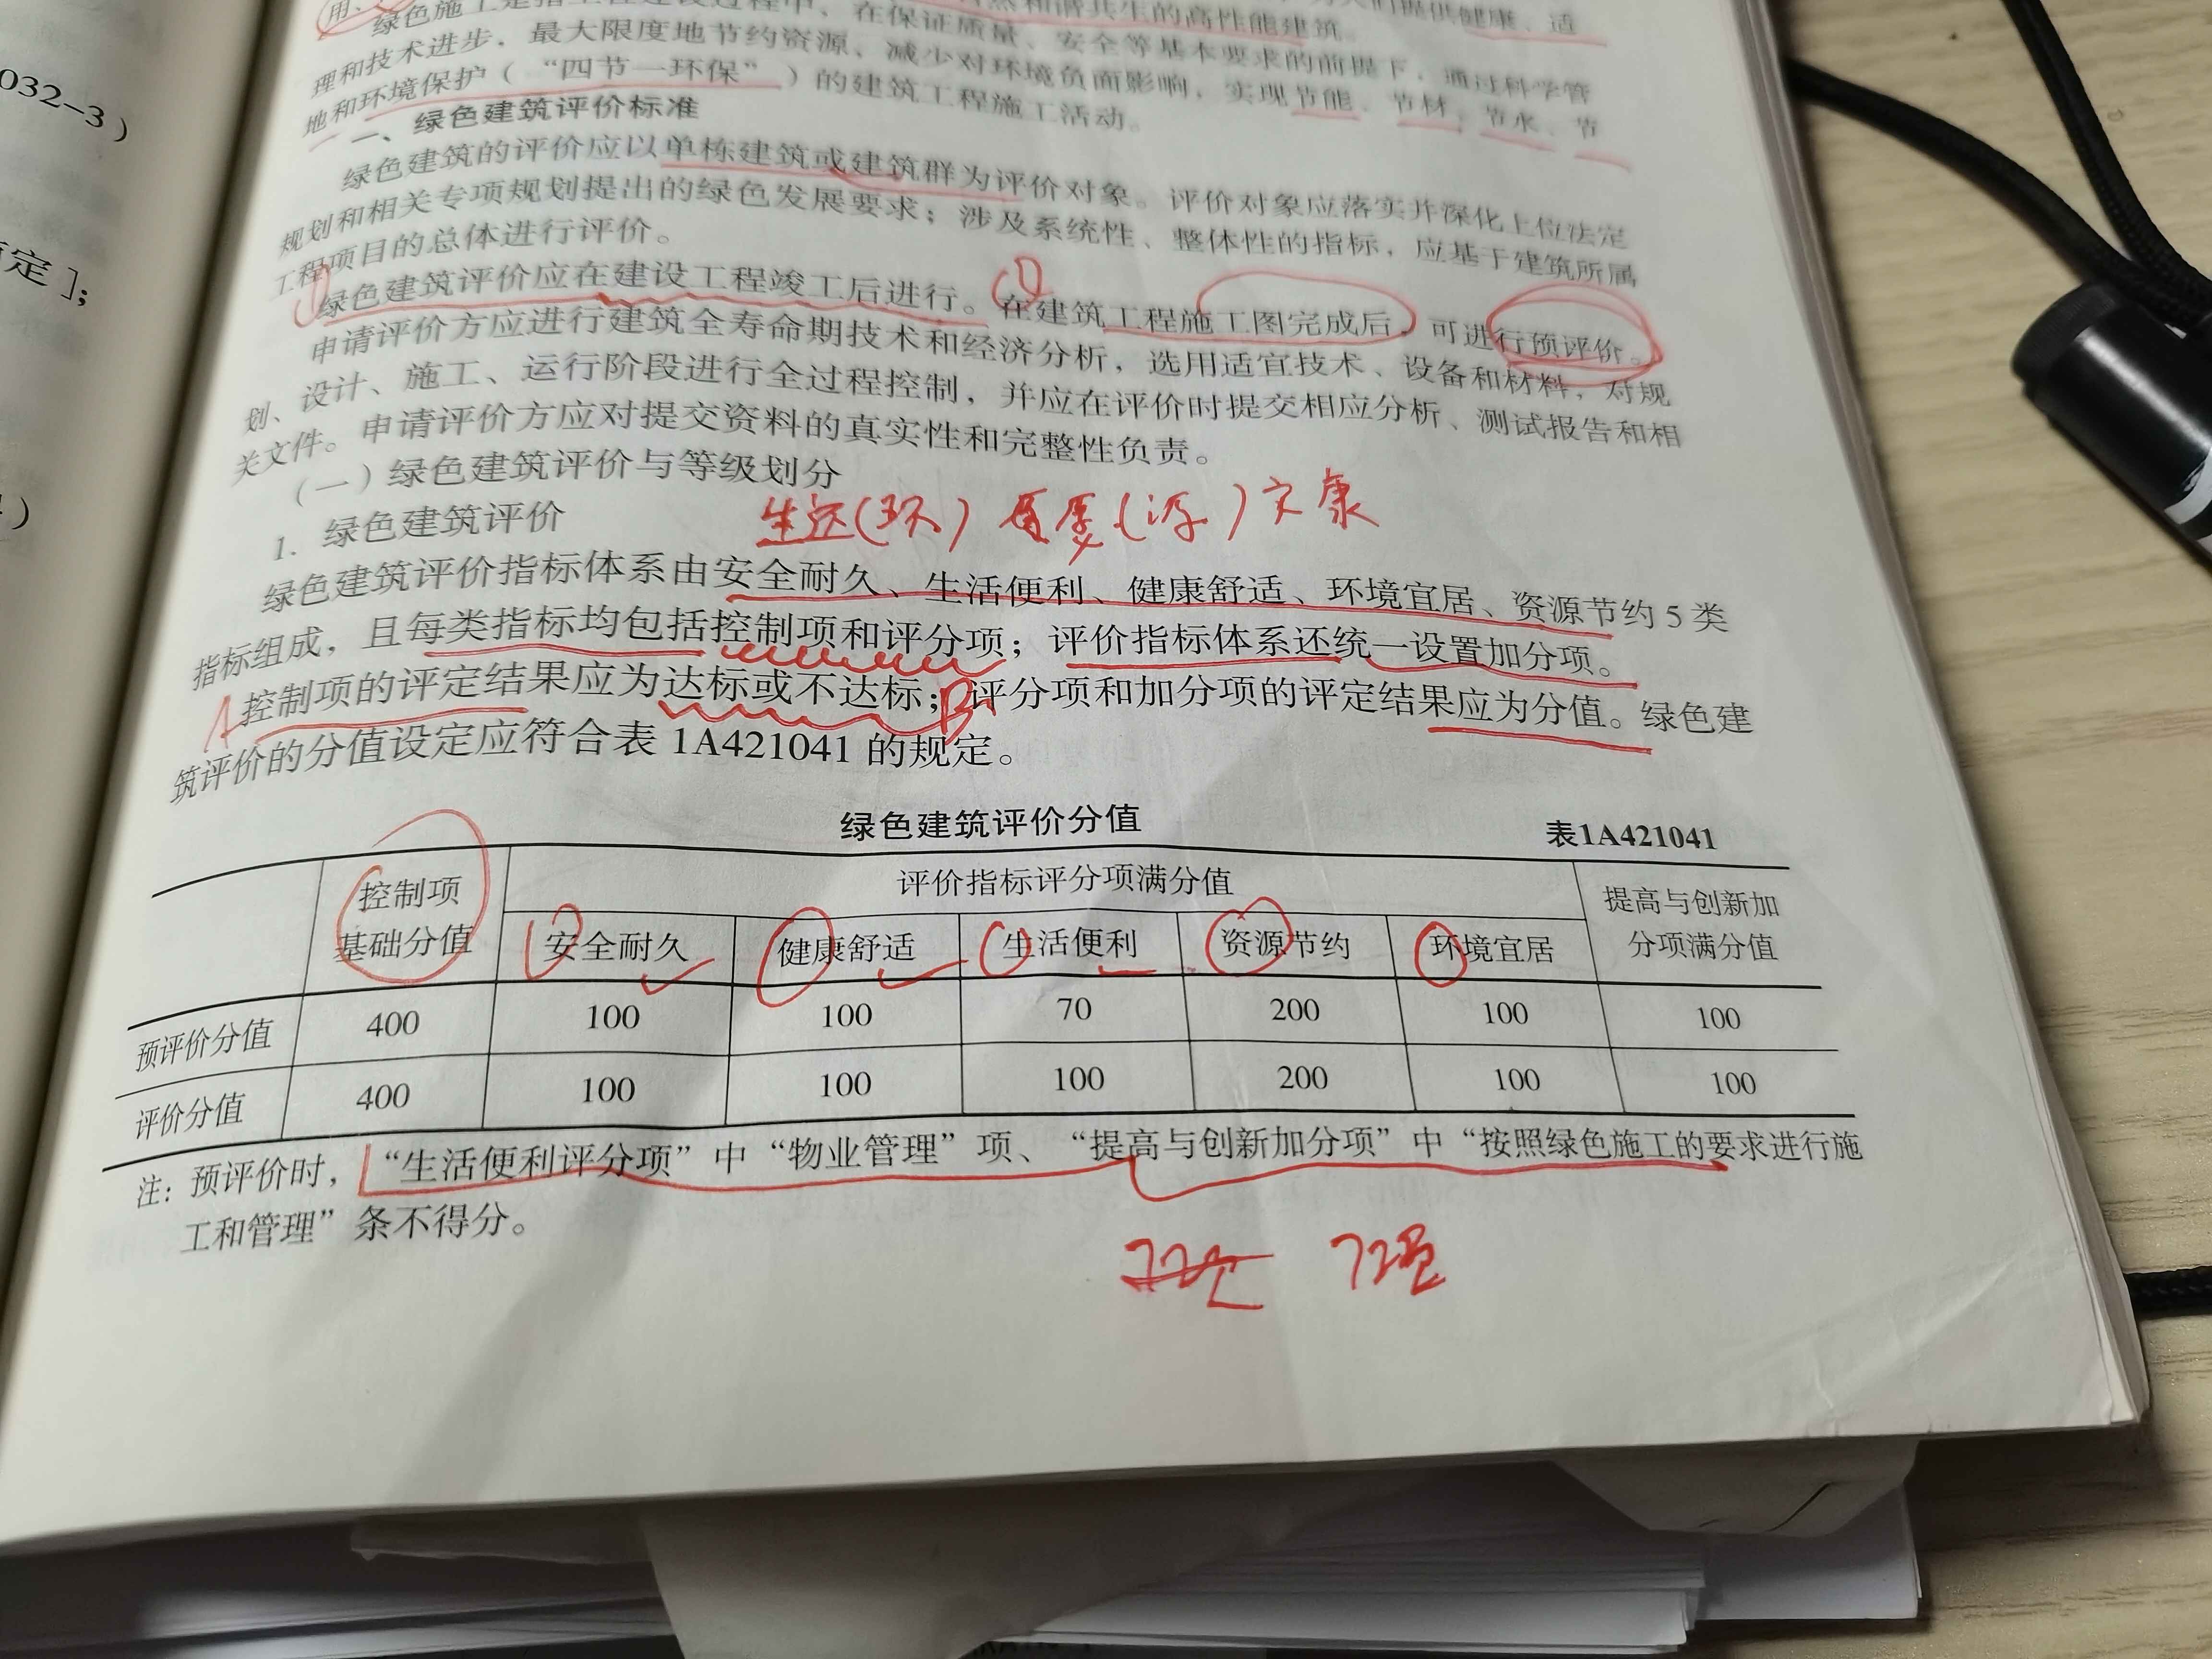 032-3）
定］；
）
用、
和谐共生的高性能建筑。
们提供健康、适
绿色施工是指工程建设过程中，在保证质量、安全等基本要求的前提下，通过科学管
理和技术进步，最大限度地节约资源，减少对环境负面影响，实现节能、节材、节水、节
地和环境保护（“四节一环保”）的建筑工程施工活动。
一、绿色建筑评价标准
绿色建筑的评价应以单栋建筑或建筑群为评价对象。评价对象应落实并深化上位法定
规划和相关专项规划提出的绿色发展要求；涉及系统性、整体性的指标，应基于建筑所属
工程项目的总体进行评价。
绿色建筑评价应在建设工程竣工后进行。在建筑工程施工图完成后，可进行预评价。
申请评价方应进行建筑全寿命期技术和经济分析，选用适宜技术、设备和材料，对规
划、设计、施工、运行阶段进行全过程控制，并应在评价时提交相应分析、测试报告和相
关文件。申请评价方应对提交资料的真实性和完整性负责。
（一）绿色建筑评价与等级划分
1. 绿色建筑评价
绿色建筑评价指标体系由安全耐久、生活便利、健康舒适、环境宜居、资源节约5类
指标组成，且每类指标均包括控制项和评分项；评价指标体系还统一设置加分项。
A 控制项的评定结果应为达标或不达标；B 评分项和加分项的评定结果应为分值。绿色建
筑评价的分值设定应符合表1A421041的规定。
绿色建筑评价分值 表1A421041
控制项基础分值 评价指标评分项满分值 提高与创新加分项满分值
安全耐久 健康舒适 生活便利 资源节约 环境宜居
预评价分值 400 100 100 70 200 100 100
评价分值 400 100 100 100 200 100 100
注：预评价时，“生活便利评分项”中“物业管理”项、“提高与创新加分项”中“按照绿色施工的要求进行施
工和管理”条不得分。